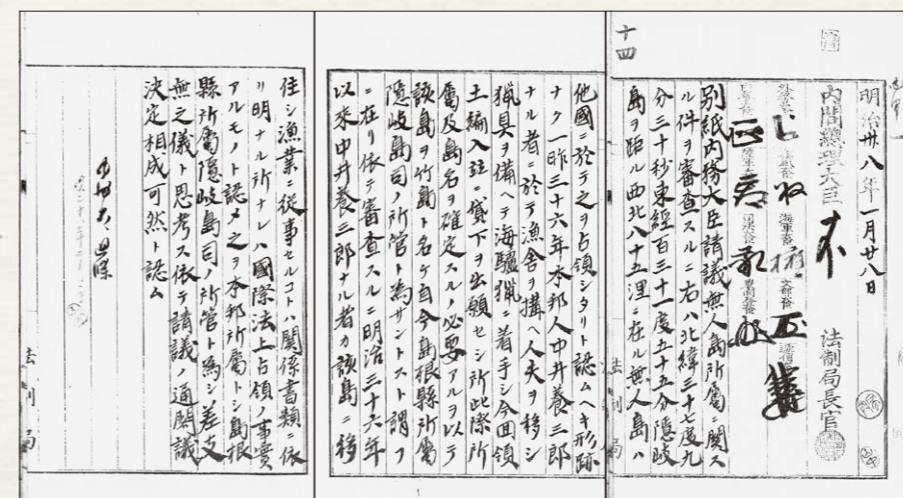 十四
明治卅八年一月廿八日
内閣總理大臣
法制局長官
別紙内務大臣請議無人島所屬ニ関ス
ル件ヲ審査スルニ右ハ北緯三十七度九
分三十秒東經百三十一度五十五分隠岐
島ヲ距ル西北八十五浬ニ在ル無人島ハ
他國ニ於テ之ヲ占領シタリト認ムヘキ形跡
ナク一昨三十六年本邦人中井養三郎
ナル者ニ於テ漁舎ヲ構ヘ人夫ヲ移シ
猟具ヲ備ヘテ海驢猟ニ着手シ今回領
土編入並ニ貸下ヲ出願セシ所此際所
屬及島名ヲ確定スルノ必要アルヲ以テ
該島ヲ竹島ト名ケ自今島根縣所屬
隠岐島司ノ所管ト為サントスト謂フ
ニ在リ依テ審査スルニ明治三十六年
以来中井養三郎ナル者カ該島ニ移
住シ漁業ニ従事セルコトハ関係書類ニ依
リ明ナル所ナレハ國際法上占領ノ事實
アルモノト認メ之ヲ本邦所屬トシ島根
縣所屬隠岐島司ノ所管ト為シ差支
無之儀ト思考ス依テ請議ノ通閣議
決定相成可然ト認ム
法制局